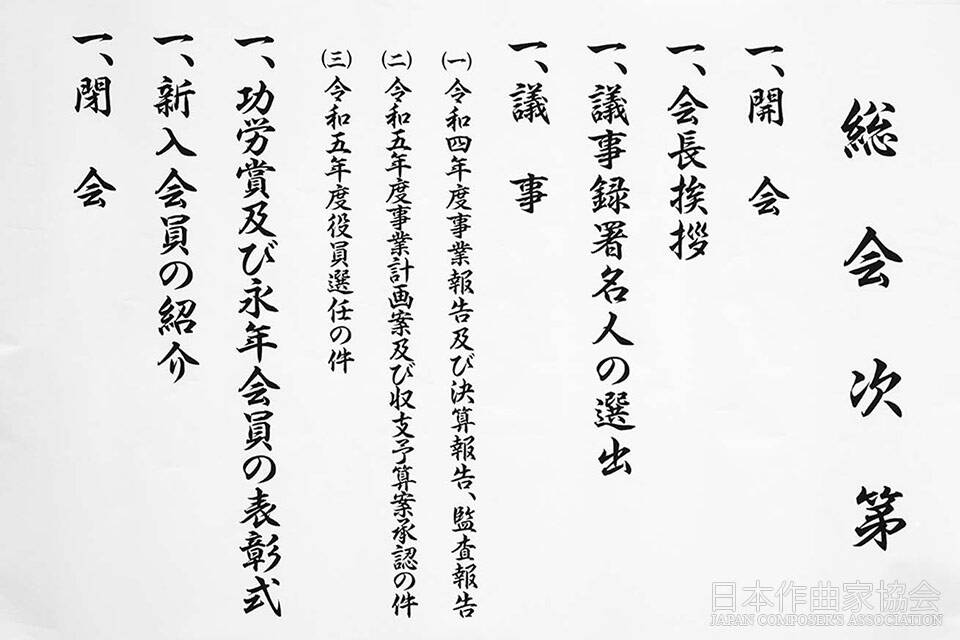 総会次第
一、開会
一、会長挨拶
一、議事録署名人の選出
一、議事
㈠令和四年度事業報告及び決算報告、監査報告
㈡令和五年度事業計画案及び収支予算案承認の件
㈢令和五年度役員選任の件
一、功労賞及び永年会員の表彰式
一、新入会員の紹介
一、閉会
日本作曲家協会
JAPAN COMPOSER'S ASSOCIATION